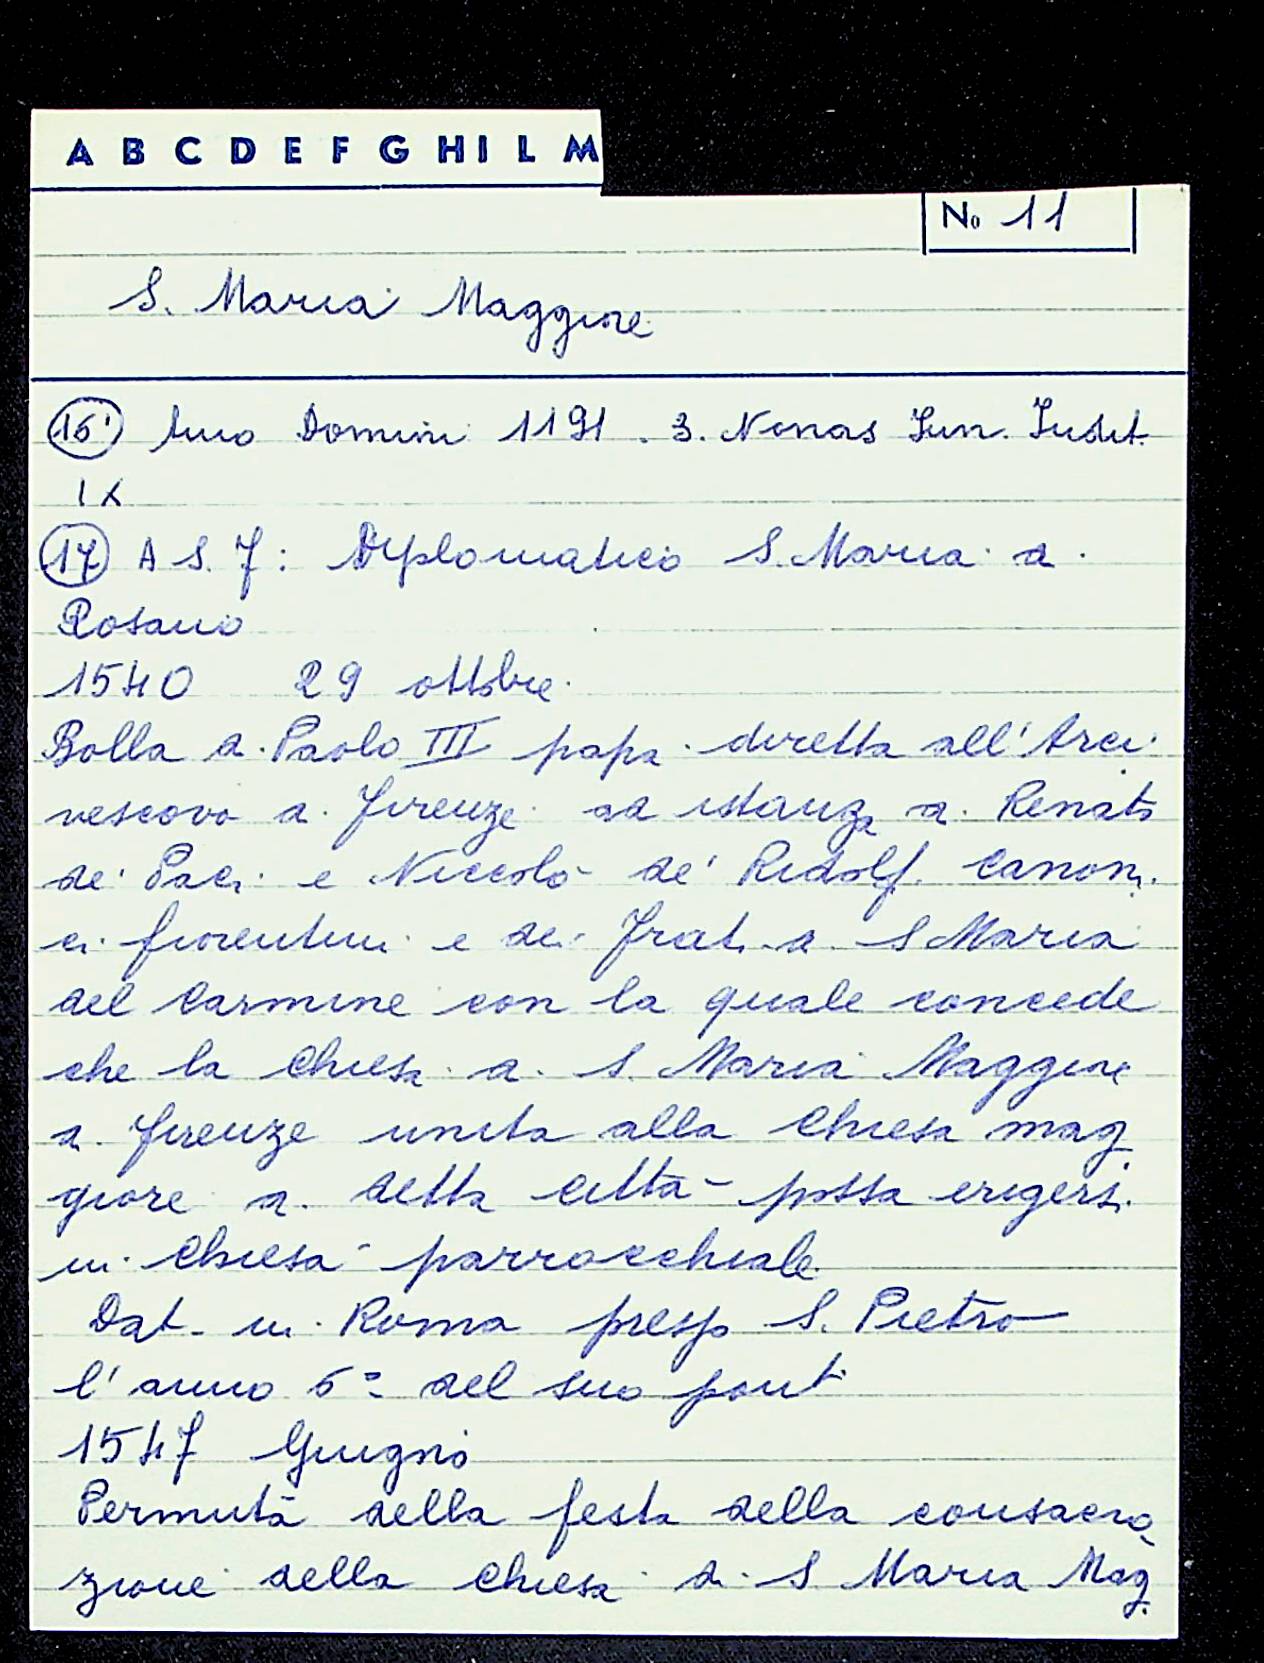 A B C D E F G H I L M
No 11
S. Maria Maggiore
16) Anno Domini 1191. 3. Nonas Iun. Indit.
IX
17) A S. F: Diplomatico S. Maria di
Rosano
1540 29 ottobre
Bolla di Paolo III papa diretta all'Arci
vescovo di Firenze ad istanza di Renato
de' Paci e Niccolò de' Ridolfi Canoni
ci fiorentini e dei Frati di S Maria
del Carmine con la quale concede
che la Chiesa di S. Maria Maggiore
di Firenze unita alla Chiesa mag
giore di detta città possa erigersi
in Chiesa parrocchiale
Dat. in Roma presso S. Pietro
l'anno 6º del suo pont
1547 Giugno
Permuta della festa della consacra
zione della Chiesa di S Maria Mag